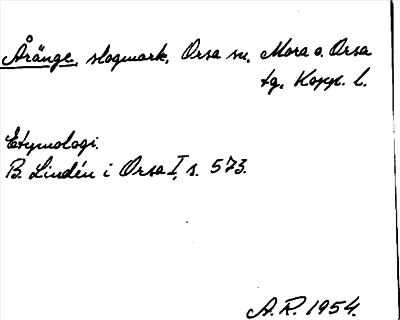 Åränge, slogmark, Orsa sn, Mora o. Orsa
tg, Kopp. l.
Etymologi.
B. Lindén i Orsa I, s. 573.
A.R. 1954.